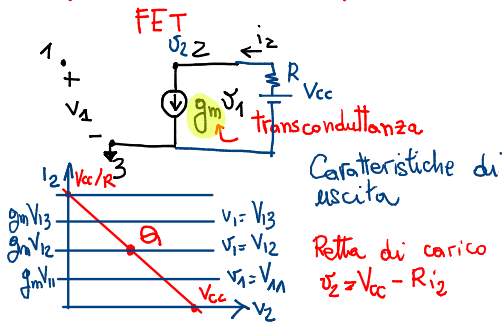 FET
1
v₂ 2
i₂
+
v₁
−
3
gₘ v₁
R
Vcc
transconduttanza
Caratteristiche di
uscita
i₂
Vcc/R
gₘV₁₃
v₁ = V₁₃
gₘV₁₂
Q
v₁ = V₁₂
gₘV₁₁
v₁ = V₁₁
Vcc
v₂
Retta di carico
v₂ = Vcc − Ri₂